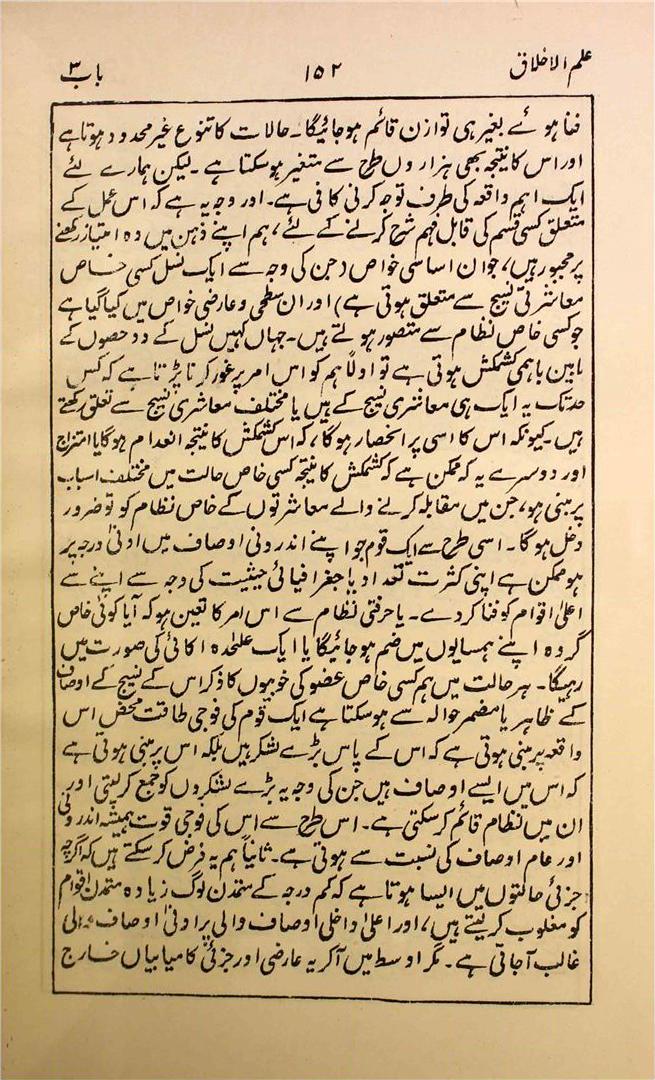 علم الاخلاق ۱۵۲ باب ۳
فنا ہوئے بغیر ہی توازن قائم ہوجائیگا۔ حالات کا تنوع غیر محدود ہوتا ہے
اور اس کا نتیجہ بھی ہزاروں طرح سے متغیر ہوسکتا ہے۔ لیکن ہمارے لئے
ایک اہم واقعہ کی طرف توجہ کرنی کافی ہے۔ اور وجہ یہ ہے کہ اس عمل کے
متعلق کسی قسم کی قابل فہم شرح کرنے کے لئے، ہم اپنے ذہن میں وہ امتیاز رکھنے
پر مجبور ہیں، جو ان اساسی خواص (جن کی وجہ سے ایک نسل کسی خاص
معاشرتی نسیج سے متعلق ہوتی ہے) اور ان سطحی و عارضی خواص میں کیا گیا ہے
جو کسی خاص نظام سے متصور ہوتے ہیں۔ جہاں کہیں نسل کے دو حصوں کے
مابین باہمی کشمکش ہوتی ہے تو اولاً ہم کو اس امر پر غور کرنا پڑتا ہے کہ کس
حد تک یہ ایک ہی معاشری نسیج کے ہیں یا مختلف معاشری نسیج سے تعلق رکھتے
ہیں۔ کیونکہ اس کا اسی پر انحصار ہوگا، کہ اس کشمکش کا نتیجہ انعدام ہوگا یا امتزاج
اور دوسرے یہ کہ ممکن ہے کہ کشمکش کا نتیجہ کسی خاص حالت میں مختلف اسباب
پر مبنی ہو، جن میں مقابلہ کرنے والے معاشرتوں کے خاص نظام کو تو ضرور
دخل ہوگا۔ اسی طرح سے ایک قوم جو اپنے اندرونی اوصاف میں ادنیٰ درجہ پر
ہو ممکن ہے اپنی کثرت تعداد یا جغرافیائی حیثیت کی وجہ سے اپنے سے
اعلیٰ اقوام کو فنا کردے۔ یا حرفتی نظام سے اس امر کا تعین ہو کہ آیا کوئی خاص
گروہ اپنے ہمسایوں میں ضم ہوجائیگا یا ایک علٰحدہ اکائی کی صورت میں
رہیگا۔ ہر حالت میں ہم کسی خاص عضو کی خوبیوں کا ذکر اس کے نسیج کے اوصاف
کے ظاہر یا مضمر حوالہ سے ہوسکتا ہے ایک قوم کی فوجی طاقت محض اس
واقعہ پر مبنی ہوتی ہے کہ اس کے پاس بڑے لشکر ہیں بلکہ اس پر مبنی ہوتی ہے
کہ اس میں ایسے اوصاف ہیں جن کی وجہ یہ بڑے لشکروں کو جمع کرلیتی اور
ان میں نظام قائم کرسکتی ہے۔ اس طرح سے اس کی فوجی قوت ہمیشہ اندرونی
اور عام اوصاف کی نسبت سے ہوتی ہے۔ ثانیاً ہم یہ فرض کرسکتے ہیں کہ اگرچہ
جزئی حالتوں میں ایسا ہوتا ہے کہ کم درجہ کے متمدن لوگ زیادہ متمدن اقوام
کو مغلوب کرلیتے ہیں، اور اعلیٰ داخلی اوصاف والی پر ادنیٰ اوصاف والی
غالب آجاتی ہے۔ مگر اوسط میں آکر یہ عارضی اور جزئی کامیابیاں خارج